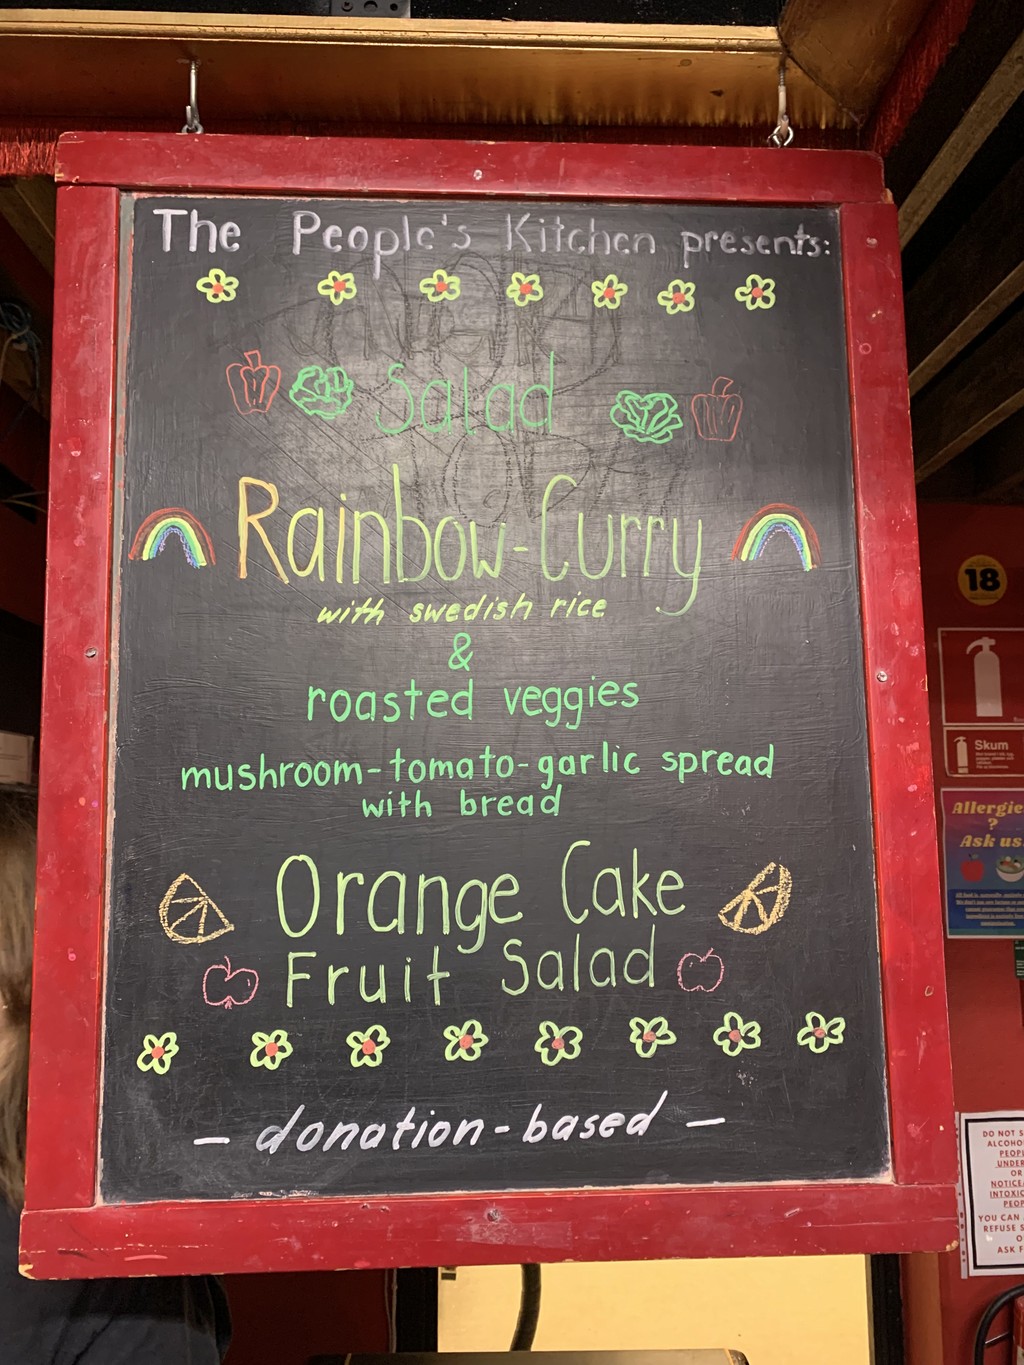 The People's Kitchen presents:
Salad
Rainbow-Curry
with swedish rice
&
roasted veggies
mushroom-tomato-garlic spread
with bread
Orange Cake
Fruit Salad
- donation-based -
18
Skum
Allergie
?
Ask us
DO NOT S
ALCOHO
PEOPL
UNDER
OR
NOTICE
INTOXIC
PEOP
YOU CAN
REFUSE S
O
ASK F